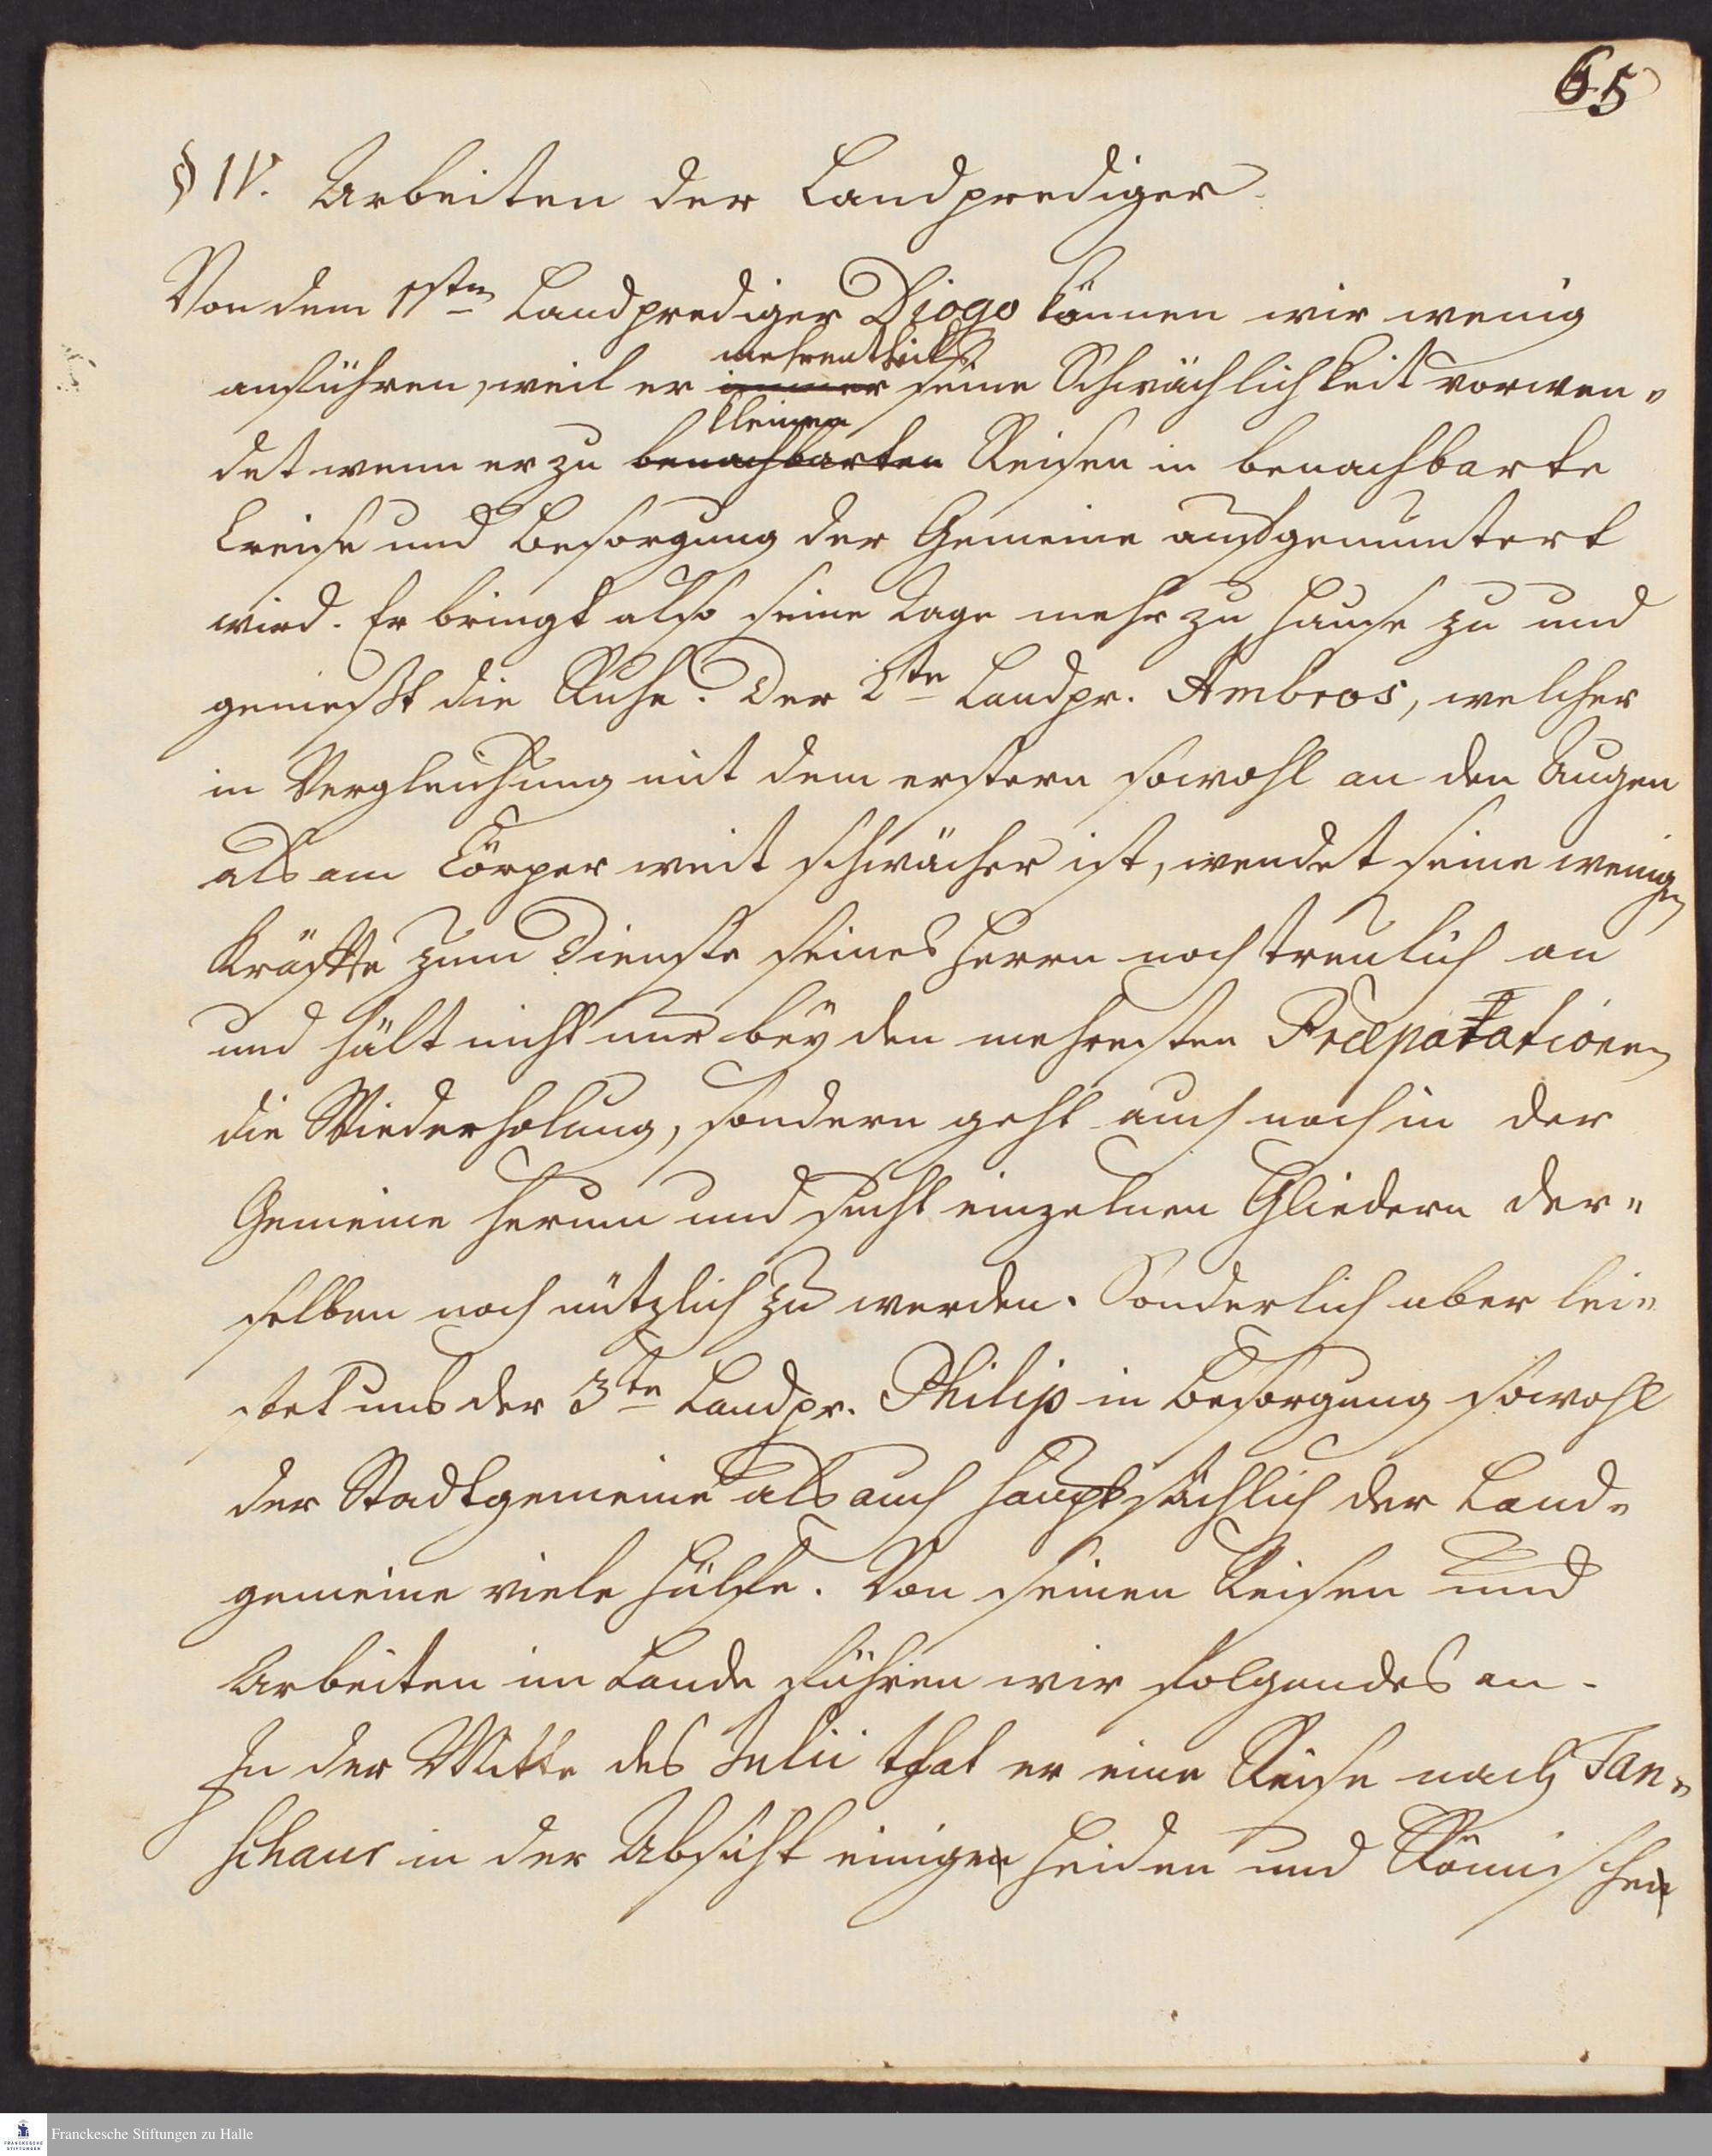 65
§ IV. Arbeiten der Landprediger.
Von dem 1sten Landprediger Diogo können wir wenig
mehrentheils
anführen, weil er immer seine Schwächlichkeit vorwen„
kleinen
det wenn er zu benachbarten Reisen in benachbarte
Creise und Besorgung der Gemeine aufgemuntert
wird. Er bringt also seine Tage mehr zu Hause zu und
geniesst die Ruhe. Der 2te Landpr. Ambros, welcher
in Vergleichung mit dem erstern sowohl an den Augen
als am Cörper weit schwächer ist, wendet seine wenigen
Kräfte zum Dienste seines Herrn noch treulich an
und hält nicht nur bey den mehresten Præparationen
die Wiederholung, sondern geht auch noch in der
Gemeine herum und sucht einzelnen Gliedern der„
selben noch nützlich zu werden. Sonderlich aber lei„
stet uns der 3te Landpr. Philip in Besorgung sowohl
der Stadtgemeine als auch hauptsächlich der Land„
gemeine viele Hülfe. Von seinen Reisen und
Arbeiten im Lande führen wir folgendes an.
In der Mitte des Julii that er eine Reise nach Tan„
schaur in der Absicht einige Heiden und Römische
Franckesche Stiftungen zu Halle